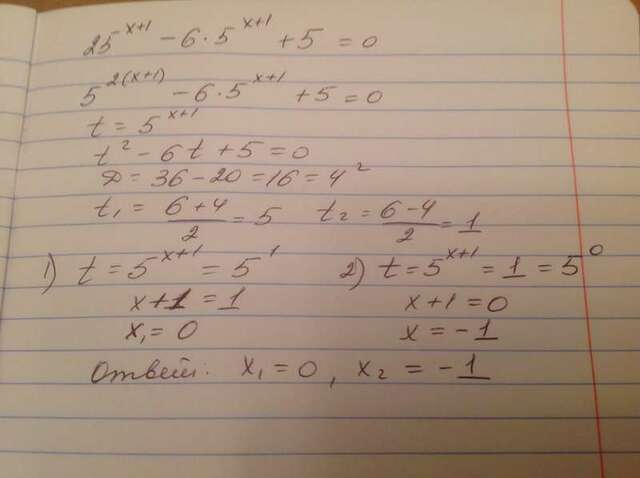 25^(x+1) - 6·5^(x+1) + 5 = 0
5^(2(x+1)) - 6·5^(x+1) + 5 = 0
t = 5^(x+1)
t² - 6t + 5 = 0
D = 36 - 20 = 16 = 4²
t₁ = (6+4)/2 = 5 t₂ = (6-4)/2 = 1
1) t = 5^(x+1) = 5^1 2) t = 5^(x+1) = 1 = 5^0
x+1 = 1 x+1 = 0
x₁ = 0 x = -1
Ответ: x₁ = 0, x₂ = -1